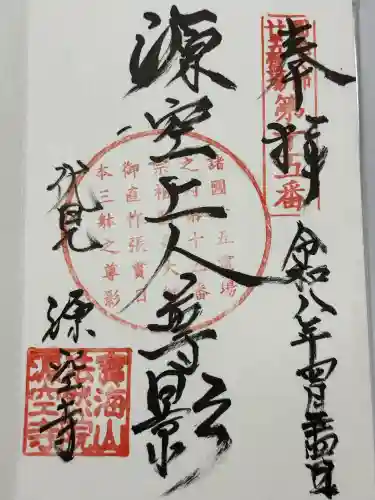 奉拝
第十五番
令和八年四月二十四日
源空上人尊影
諸國二五霊場
之内第十二番
御直作張貫日
本三躰之尊影
伏見
源空寺
寳海山
法然院
源空寺